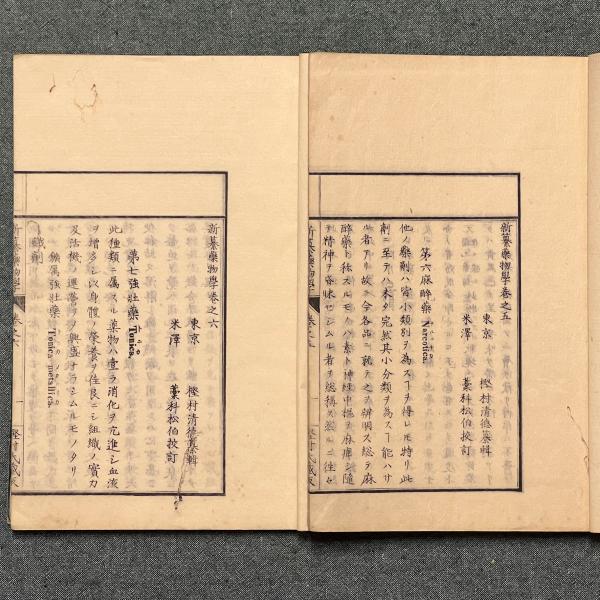 新纂藥物學巻之五
東京 樫村清德纂輯
米澤 藁科松伯挍訂
第六麻醉藥 Narcotica.
他ノ藥劑ハ皆小類別ヲ為スヿヲ得レ𪜈特リ此
劑ニ至テハ未タ完然其小分類ヲ為スヿ能ハサ
ル者アリ故ニ今各品ニ就テ之ヲ辨明ス総テ麻
醉藥ト称スルモノハ素ト神経中樞ヲ麻痺シ隨
新纂藥物學巻之六
東京 樫村清德纂輯
米澤 藁科松伯挍訂
第七強壯藥 Tonica.
此種類ニ属スル藥物ハ壹ラ消化ヲ亢進シ血液
ヲ増多シ以身體ノ榮養ヲ佳良ニシ組織ノ實力
及活機ノ運営ヲ興盛ナラシムルモノタリ
鑛属強壯藥 Tonica metallica.
鐵劑